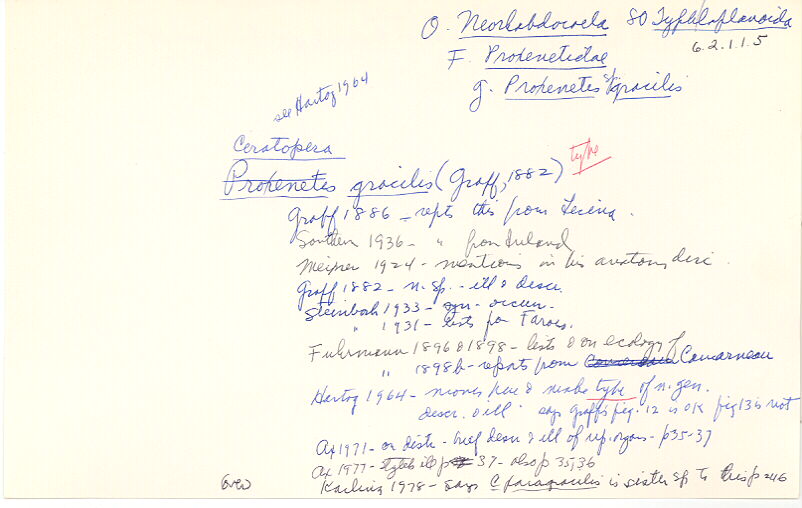 O. Neorhabdocoela SO Typhloplanoida
6.2.1.1.5
F. Proxenetidae
g. Proxenetes gracilis
see Hartog 1964
Ceratopera
Proxenetes gracilis (Graff, 1882) type
Graff 1886 - repts this from Lesina.
Southern 1936 - " from Ireland
Meixner 1924 - mentions in his anatomy disc.
Graff 1882 - n. sp. - ill & descr.
Steinbock 1933 - syn. occurr.
" 1931 - lists for Faroes.
Fuhrmann 1896 & 1898 - lists & on ecology of
" 1898b - reports from Concarneau
Hartog 1964 - moves here & makes type of n. gen.
descr. & ill. says Graff's fig. 12 is OK fig 13 is not
Ax 1971 - on distr. - brief descr & ill of rep. organs - p35-37
Ax 1977 - stylet ill p 37 - also p 35, 36
Karling 1978 - says C. paragracilis is sister sp to this p 246
(over)